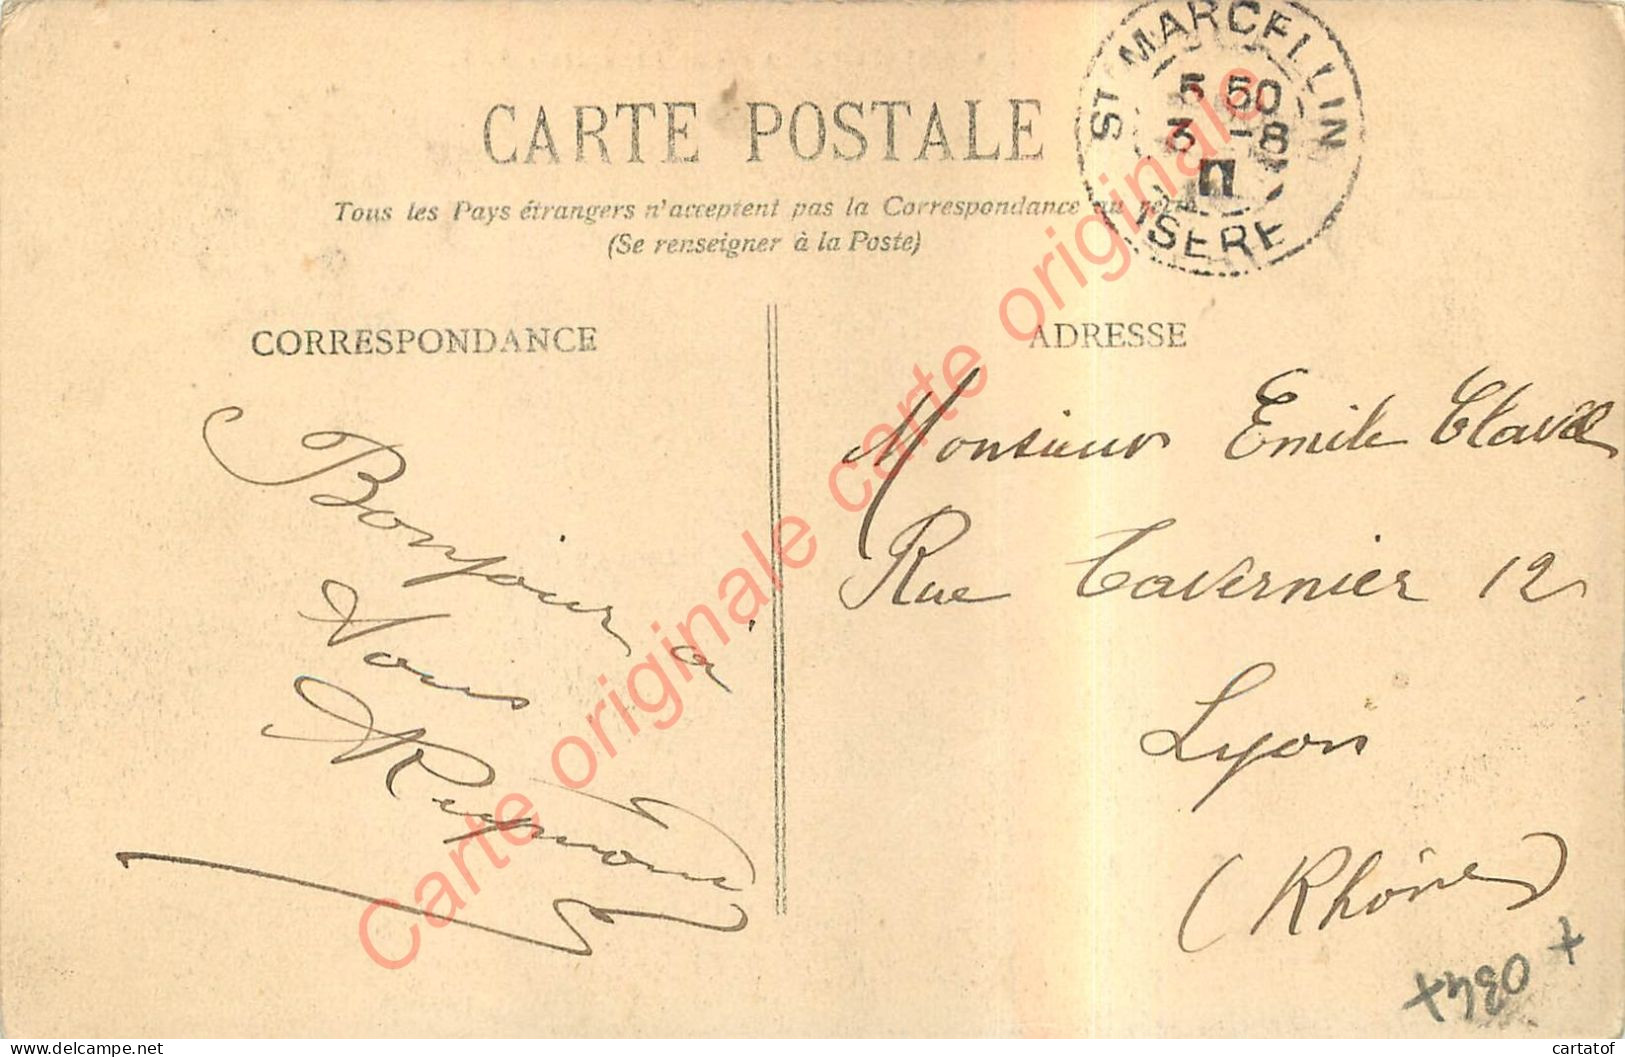 CARTE POSTALE
Tous les Pays étrangers n'acceptent pas la Correspondance au recto
(Se renseigner à la Poste)
ST MARCELLIN
5 50
3 -8
ISERE
CORRESPONDANCE
Bonjour à
Vous
ADRESSE
Monsieur Emile Clavel
Rue Tavernier 12
Lyon
(Rhône)
Carte originale carte originale carte originale
cartatof